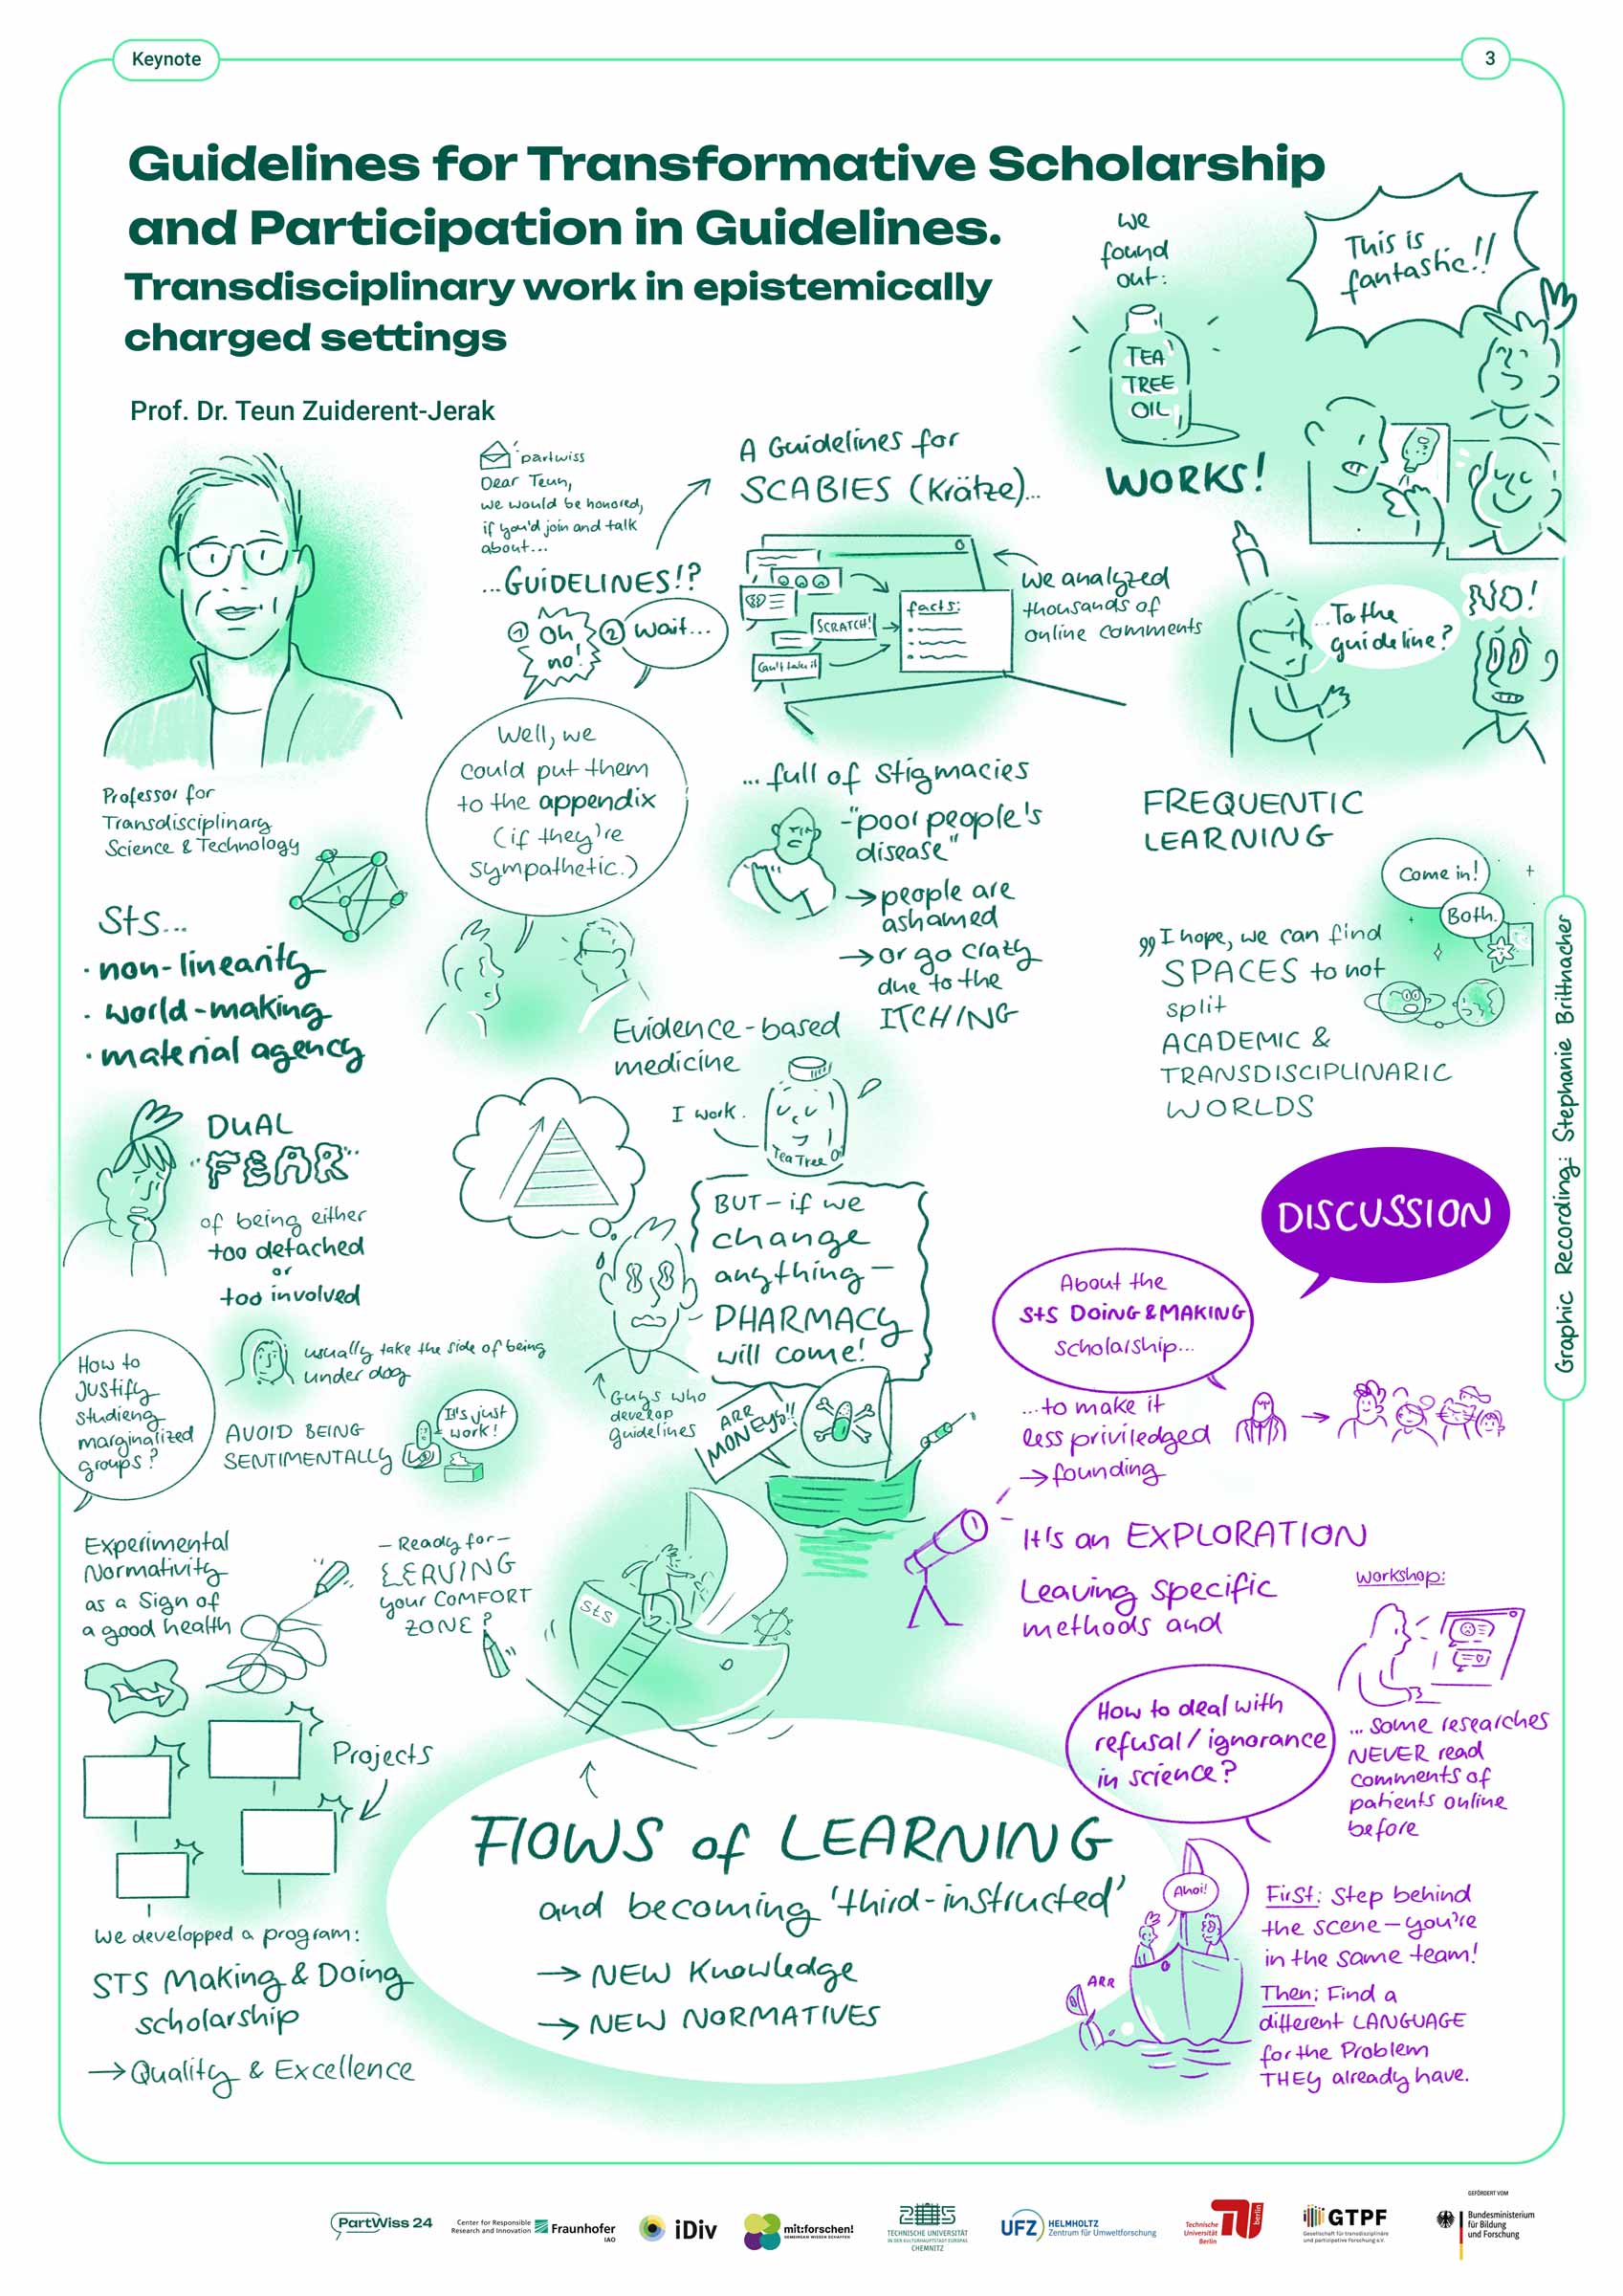 Keynote
3
Guidelines for Transformative Scholarship
and Participation in Guidelines.
Transdisciplinary work in epistemically
charged settings
Prof. Dr. Teun Zuiderent-Jerak
Professor for
Transdisciplinary
Science & Technology
partwiss
Dear Teun,
we would be honored,
if you'd join and talk
about...
...GUIDELINES!?
1 Oh
no!
2 Wait...
A Guidelines for
SCABIES (Krätze)...
SCRATCH!
Can't take it
facts:
We analyzed
thousands of
online comments
We
found
out:
TEA
TREE
OIL
WORKS!
This is
fantastic!!
...To the
guideline?
NO!
Well, we
could put them
to the appendix
(if they're
sympathetic.)
... full of stigmacies
-"poor people's
disease"
→ people are
ashamed
→ or go crazy
due to the
ITCHING
FREQUENTIC
LEARNING
Come in!
Both.
"I hope, we can find
SPACES to not
split
ACADEMIC &
TRANSDISCIPLINARIC
WORLDS
StS...
· non-linearity
· world-making
· material agency
DUAL
"FEAR"
of being either
too detached
or
too involved
Evidence-based
medicine
I work.
Tea Tree Oil
BUT - if we
change
anything -
PHARMACY
will come!
Guys who
develop
guidelines
ARR
MONEYS!!
How to
justify
studieng
marginalized
groups?
usually take the side of being
under dog
AVOID BEING
SENTIMENTALLY
It's just
work!
Experimental
Normativity
as a sign of
a good health
- Ready for -
LEAVING
your COMFORT
ZONE?
StS
Projects
We developped a program:
STS Making & Doing
scholarship
→ Quality & Excellence
FlOWS of LEARNING
and becoming 'third-instructed'
→ NEW Knowledge
→ NEW NORMATIVES
DISCUSSION
About the
StS DOING & MAKING
Scholarship...
...to make it
less priviledged
→ founding
It's an EXPLORATION
Leaving specific
methods and
workshop:
... some researches
NEVER read
comments of
patients online
before
How to deal with
refusal / ignorance
in science?
Ahoi!
ARR
First: Step behind
the scene - you're
in the same team!
Then: Find a
different LANGUAGE
for the Problem
THEY already have.
Graphic Recording: Stephanie Brittnacher
PartWiss 24
Center for Responsible
Research and Innovation
Fraunhofer
IAO
iDiv
mit:forschen!
GEMEINSAM WISSEN SCHAFFEN
TECHNISCHE UNIVERSITÄT
IN DER KULTURHAUPTSTADT EUROPAS
CHEMNITZ
UFZ
HELMHOLTZ
Zentrum für Umweltforschung
Technische
Universität
Berlin
berlin
GTPF
Gesellschaft für transdisziplinäre
und partizipative Forschung e.V.
GEFÖRDERT VOM
Bundesministerium
für Bildung
und Forschung